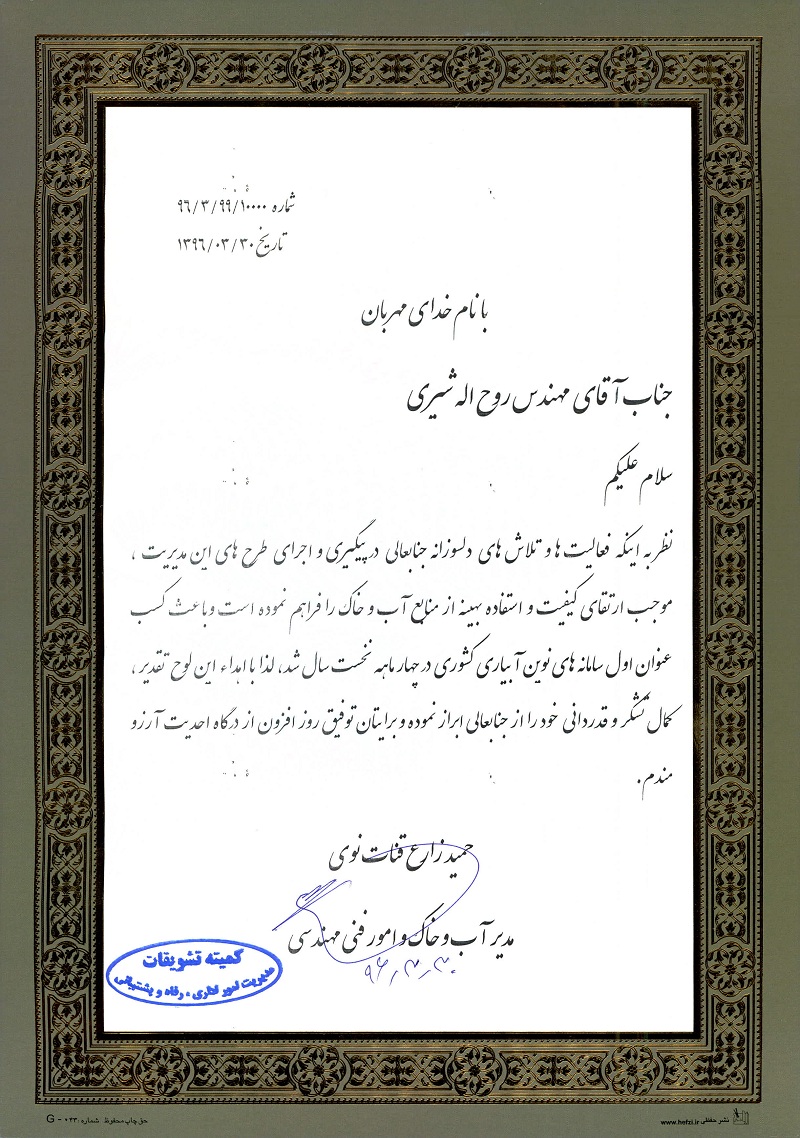 شماره ۹۶/۳/۹۹/۱۰۰۰۰
تاریخ ۱۳۹۶/۰۳/۳۰
با نام خدای مهربان
جناب آقای مهندس روح اله شیری
سلام علیکم
نظر به اینکه فعالیت ها و تلاش های دلسوزانه جنابعالی در پیگیری و اجرای طرح های این مدیریت ،
موجب ارتقای کیفیت و استفاده بهینه از منابع آب و خاک را فراهم نموده است و باعث کسب
عنوان اول سامانه های نوین آبیاری کشوری در چهار ماهه نخست سال شد، لذا با اهداء این لوح تقدیر ،
کمال تشکر و قدردانی خود را از جنابعالی ابراز نموده و برایتان توفیق روز افزون از درگاه احدیت آرزو
مندم.
حمید زارع قنات نوی
مدیر آب و خاک و امور فنی مهندسی
۹۶/۳/۳۰
کمیته تشویقات
مدیریت امور اداری ، رفاه و پشتیبانی
حق چاپ محفوظ شماره ۰۴۳ - G
نشر حفظی www.hefzi.ir